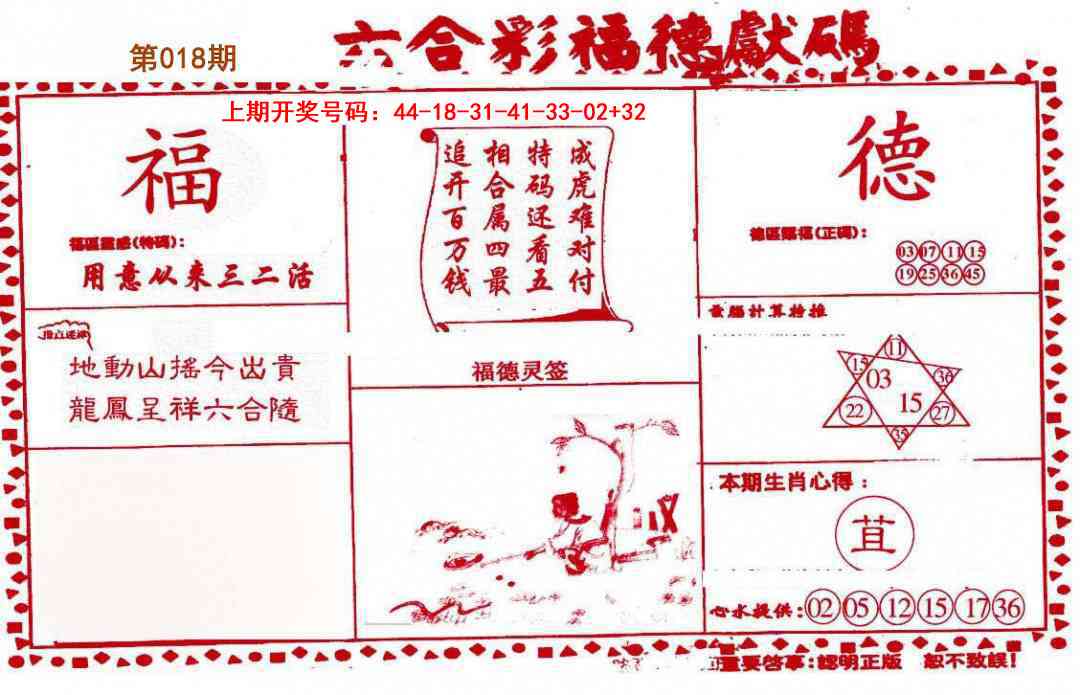 六合彩福德獻碼
第018期
上期开奖号码：44-18-31-41-33-02+32
福
福區靈感(特碼)：
用意从来三二活
地動山搖今出貴
龍鳳呈祥六合隨
成虎难对付
特码还看五
相合属四最
追开百万钱
福德灵签
德
德區賜福(正碼)：
03 07 11 15
19 25 36 45
電腦計算特推
11
15 36
03
15
22 27
35
本期生肖心得：
苴
心水提供：02 05 12 15 17 36
重要啓事：認明正版 恕不致誤！